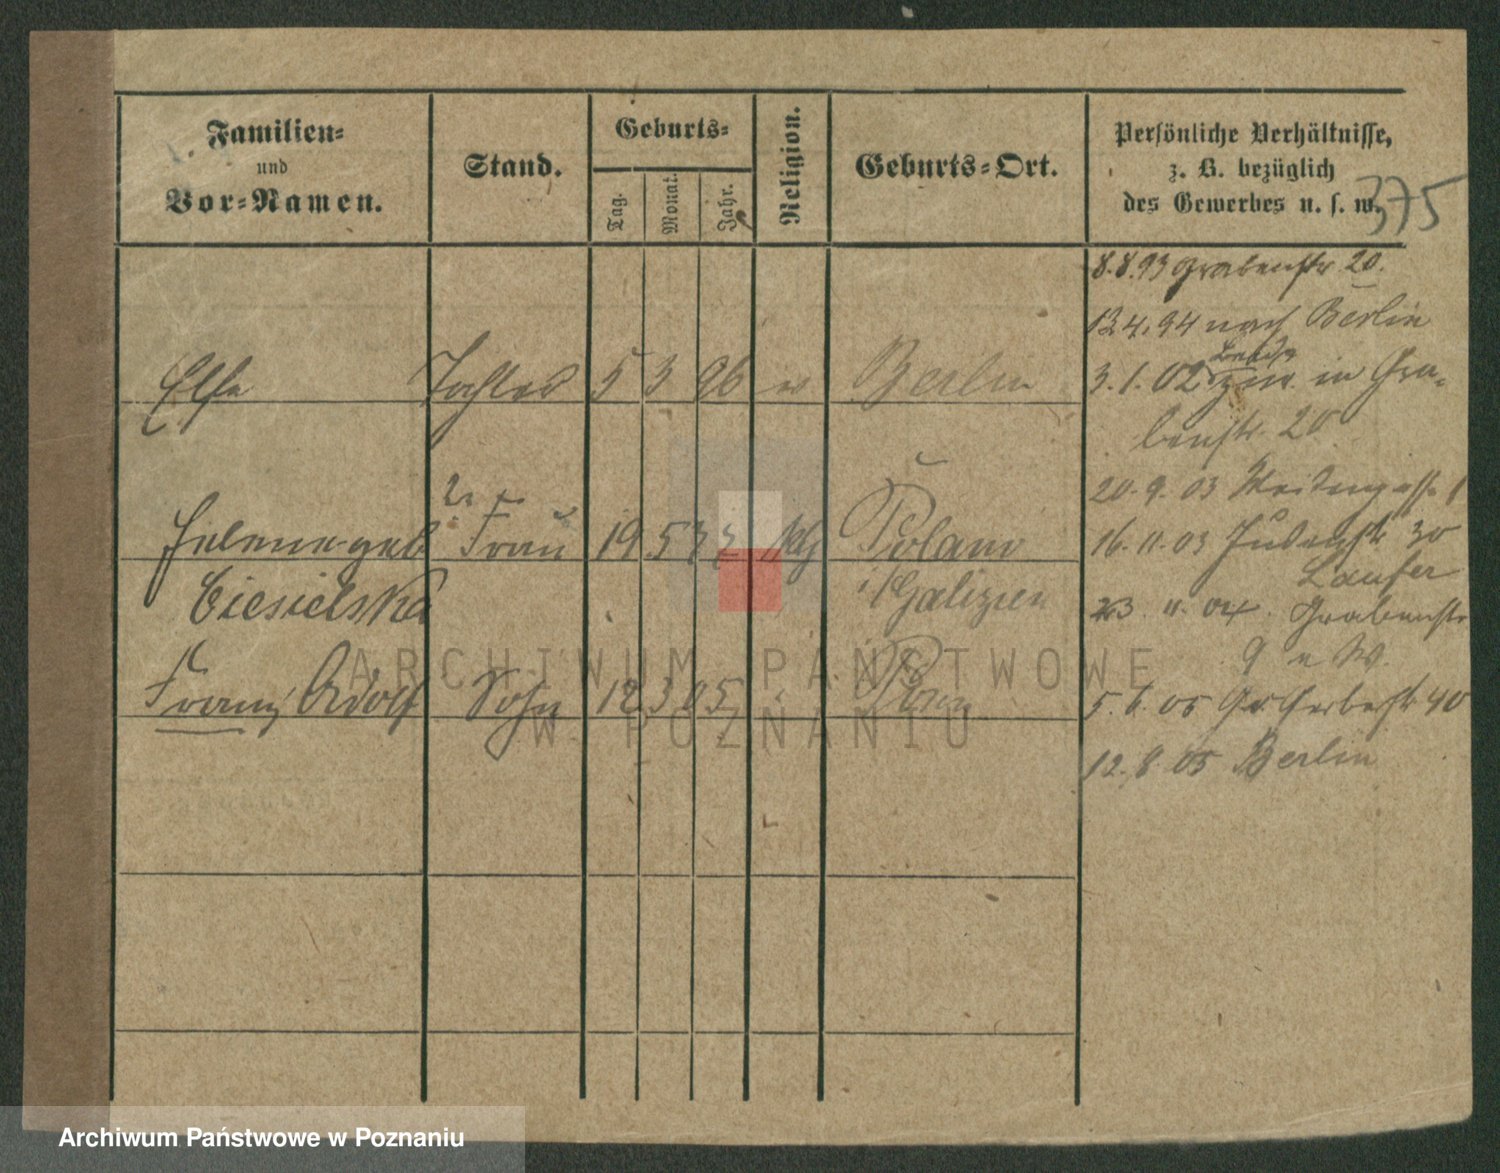 Familien=
und
Vor=Namen.
Stand.
Geburts=
Tag.
Monat.
Jahr.
Religion.
Geburts=Ort.
Persönliche Verhältnisse,
z. B. bezüglich
des Gewerbes u. s. w.
375
8.8.93 Grabenstr 20.
13.4.94 nach Berlin
Else Tochter 5 3 96 Berlin
3.1.02 in Gra-
benstr. 20
20.9.03
2. Frau
Helene geb 19 5 7 kth
16.11.03 Judenstr 30
Ciesielska
i/Galizien
Laufer
23 11 04 Grabenstr
9 W.
Franz Adolf Sohn 12 3 05 Posen
5.6.05 40
12.8.05 Berlin
ARCHIWUM PAŃSTWOWE
W POZNANIU
Archiwum Państwowe w Poznaniu